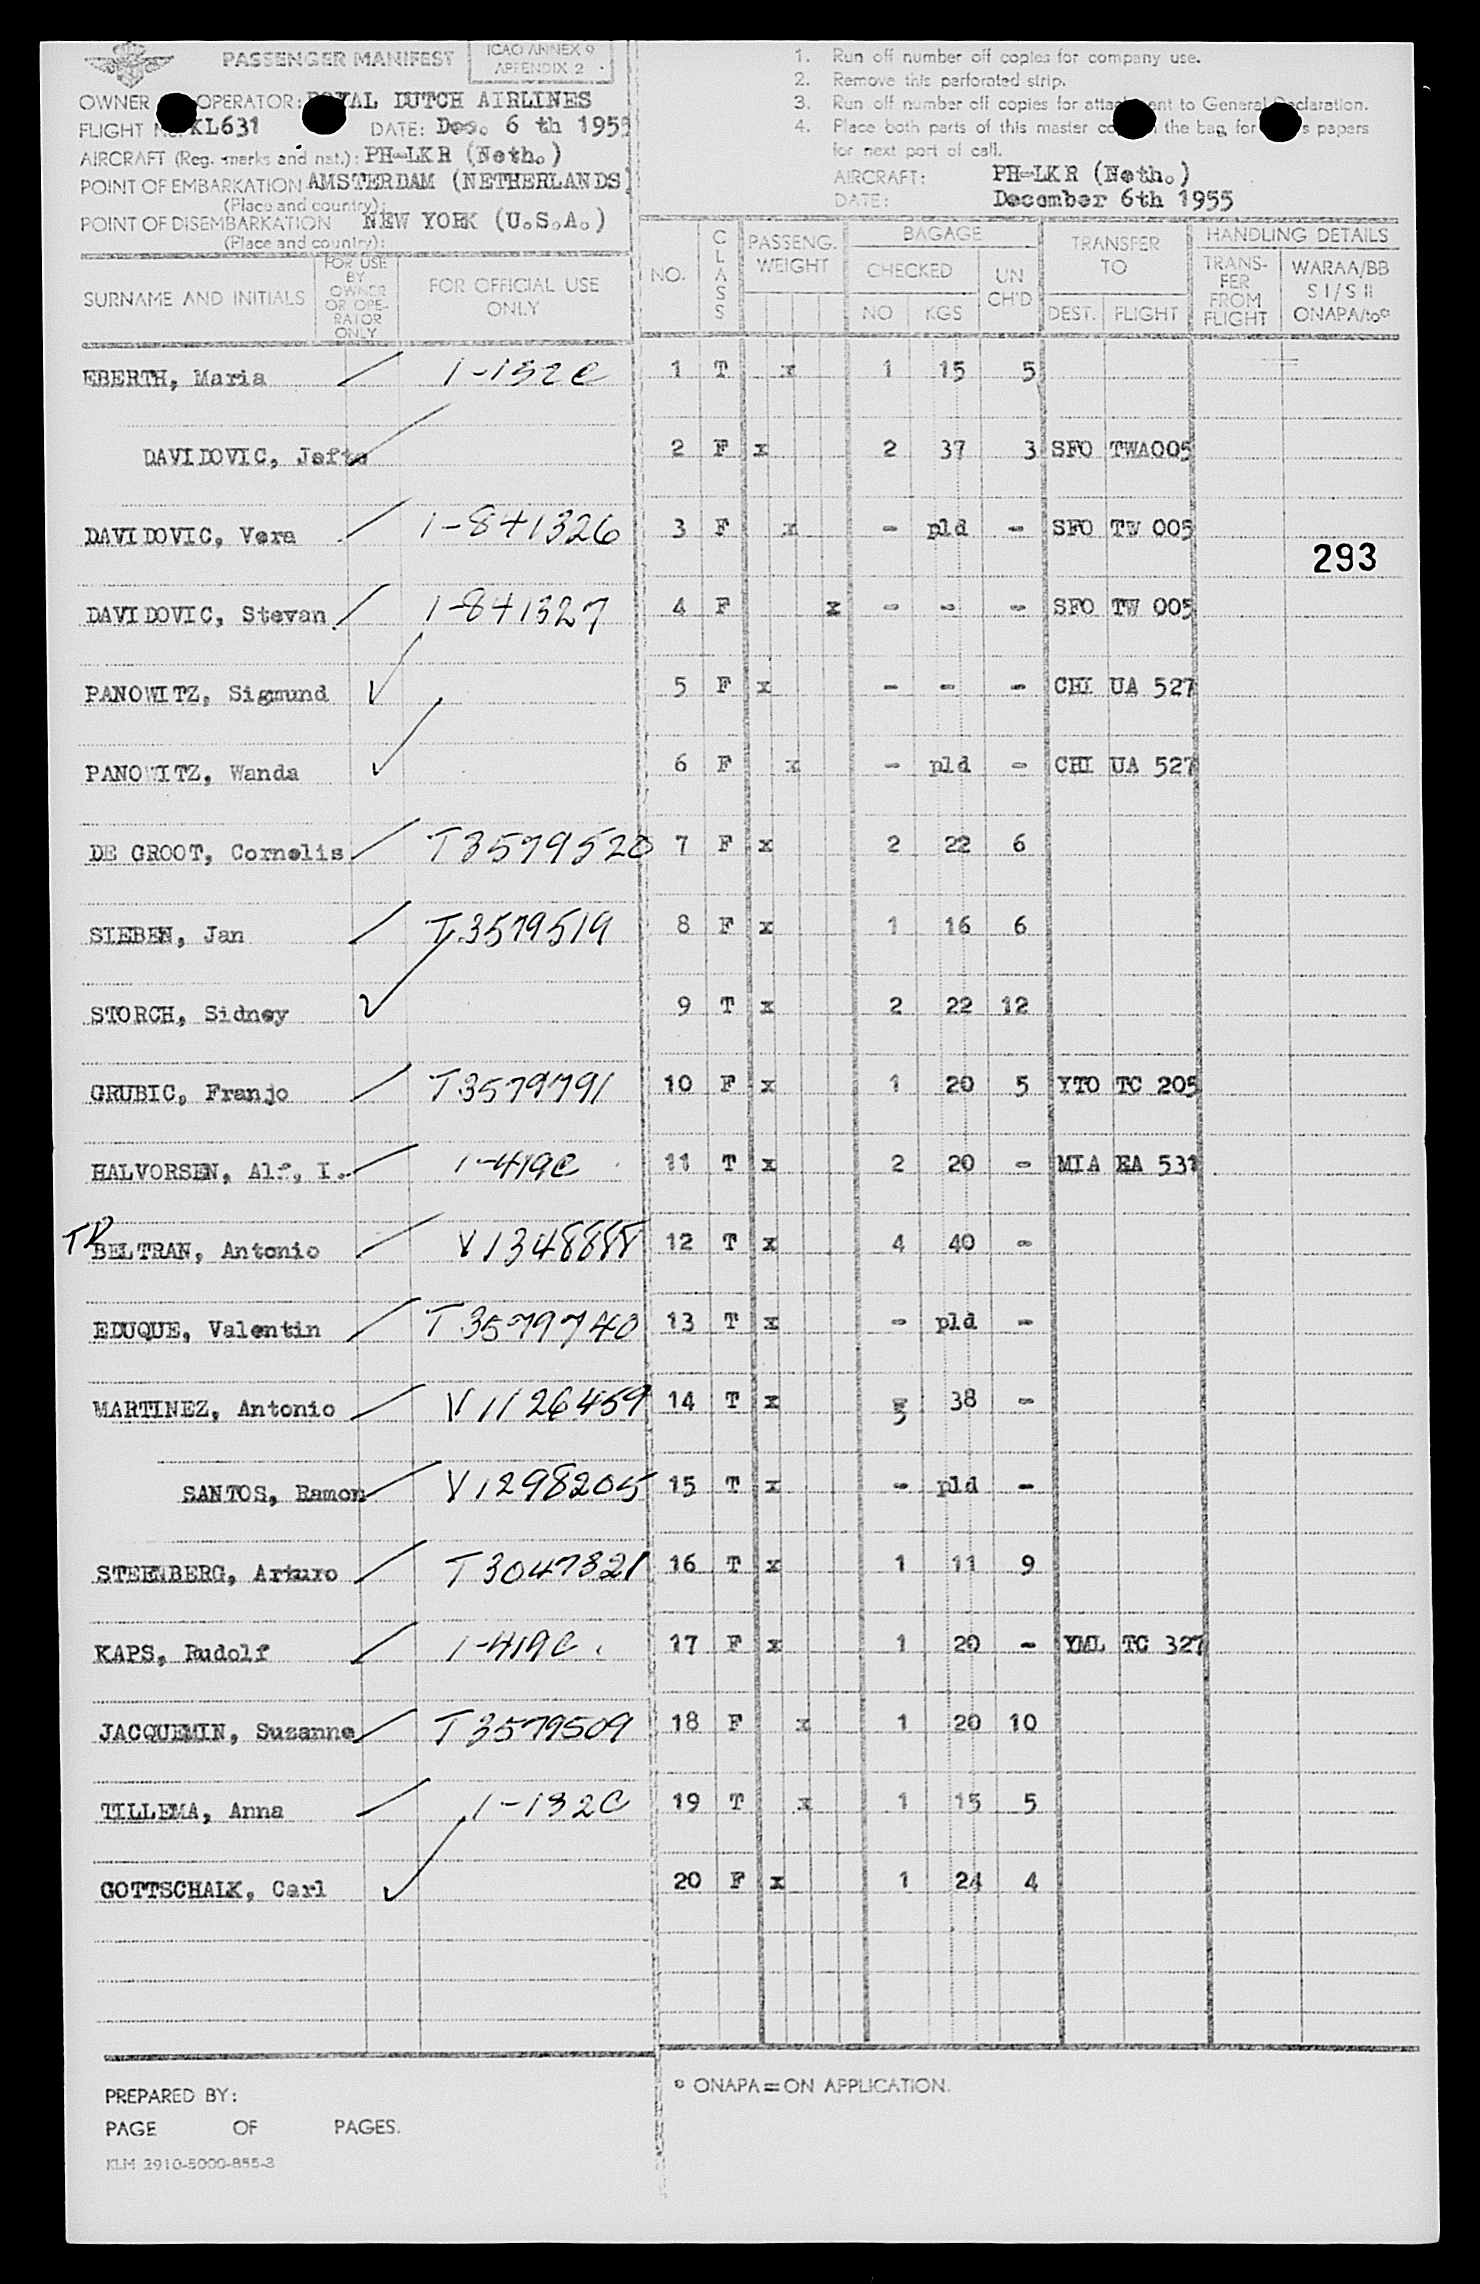 PASSENGER MANIFEST
ICAO ANNEX 9
APPENDIX 2
OWNER OPERATOR: ROYAL DUTCH AIRLINES
FLIGHT No. KL631 DATE: Dec. 6 th 1955
AIRCRAFT (Reg. marks and nat.): PH-LKR (Neth.)
POINT OF EMBARKATION AMSTERDAM (NETHERLANDS)
(Place and country):
POINT OF DISEMBARKATION NEW YORK (U.S.A.)
(Place and country):
1. Run off number off copies for company use.
2. Remove this perforated strip.
3. Run off number off copies for attachment to General Declaration.
4. Place both parts of this master copy in the bag, for ship's papers
for next port of call.
AIRCRAFT: PH-LKR (Neth.)
DATE: December 6th 1955
SURNAME AND INITIALS FOR USE BY OWNER OR OPERATOR ONLY FOR OFFICIAL USE ONLY NO. CLASS PASSENG. WEIGHT BAGAGE CHECKED NO KGS UN CH'D TRANSFER TO DEST. FLIGHT HANDLING DETAILS TRANS-FER FROM FLIGHT WARAA/BB S I/S II ONAPA/to°
EBERTH, Maria 1-132c 1 T x 1 15 5
DAVIDOVIC, Jefto 2 F x 2 37 3 SFO TWA005
DAVIDOVIC, Vera 1-841326 3 F x - pld - SFO TW 005
293
DAVIDOVIC, Stevan 1-841327 4 F x - - - SFO TW 005
PANOWITZ, Sigmund 5 F x - - - CHI UA 527
PANOWITZ, Wanda 6 F x - pld - CHI UA 527
DE GROOT, Cornelis T3579520 7 F x 2 22 6
SIEBEN, Jan T3579519 8 F x 1 16 6
STORCH, Sidney 9 T x 2 22 12
GRUBIC, Franjo T3579791 10 F x 1 20 5 YTO TC 205
HALVORSEN, Alf, I. 1-419C 11 T x 2 20 - MIA EA 531
BELTRAN, Antonio V1348888 12 T x 4 40 -
EDUQUE, Valentin T3579740 13 T x - pld -
MARTINEZ, Antonio V1126459 14 T x 5 38 -
SANTOS, Ramon V1298205 15 T x - pld -
STEENBERG, Arturo T3047321 16 T x 1 11 9
KAPS, Rudolf 1-419C 17 F x 1 20 - YML TC 327
JACQUEMIN, Suzanne T3579509 18 F x 1 20 10
TILLEMA, Anna 1-132C 19 T x 1 15 5
GOTTSCHALK, Carl 20 F x 1 24 4
PREPARED BY:
PAGE OF PAGES.
KLM 2910-5000-855-3
° ONAPA = ON APPLICATION.